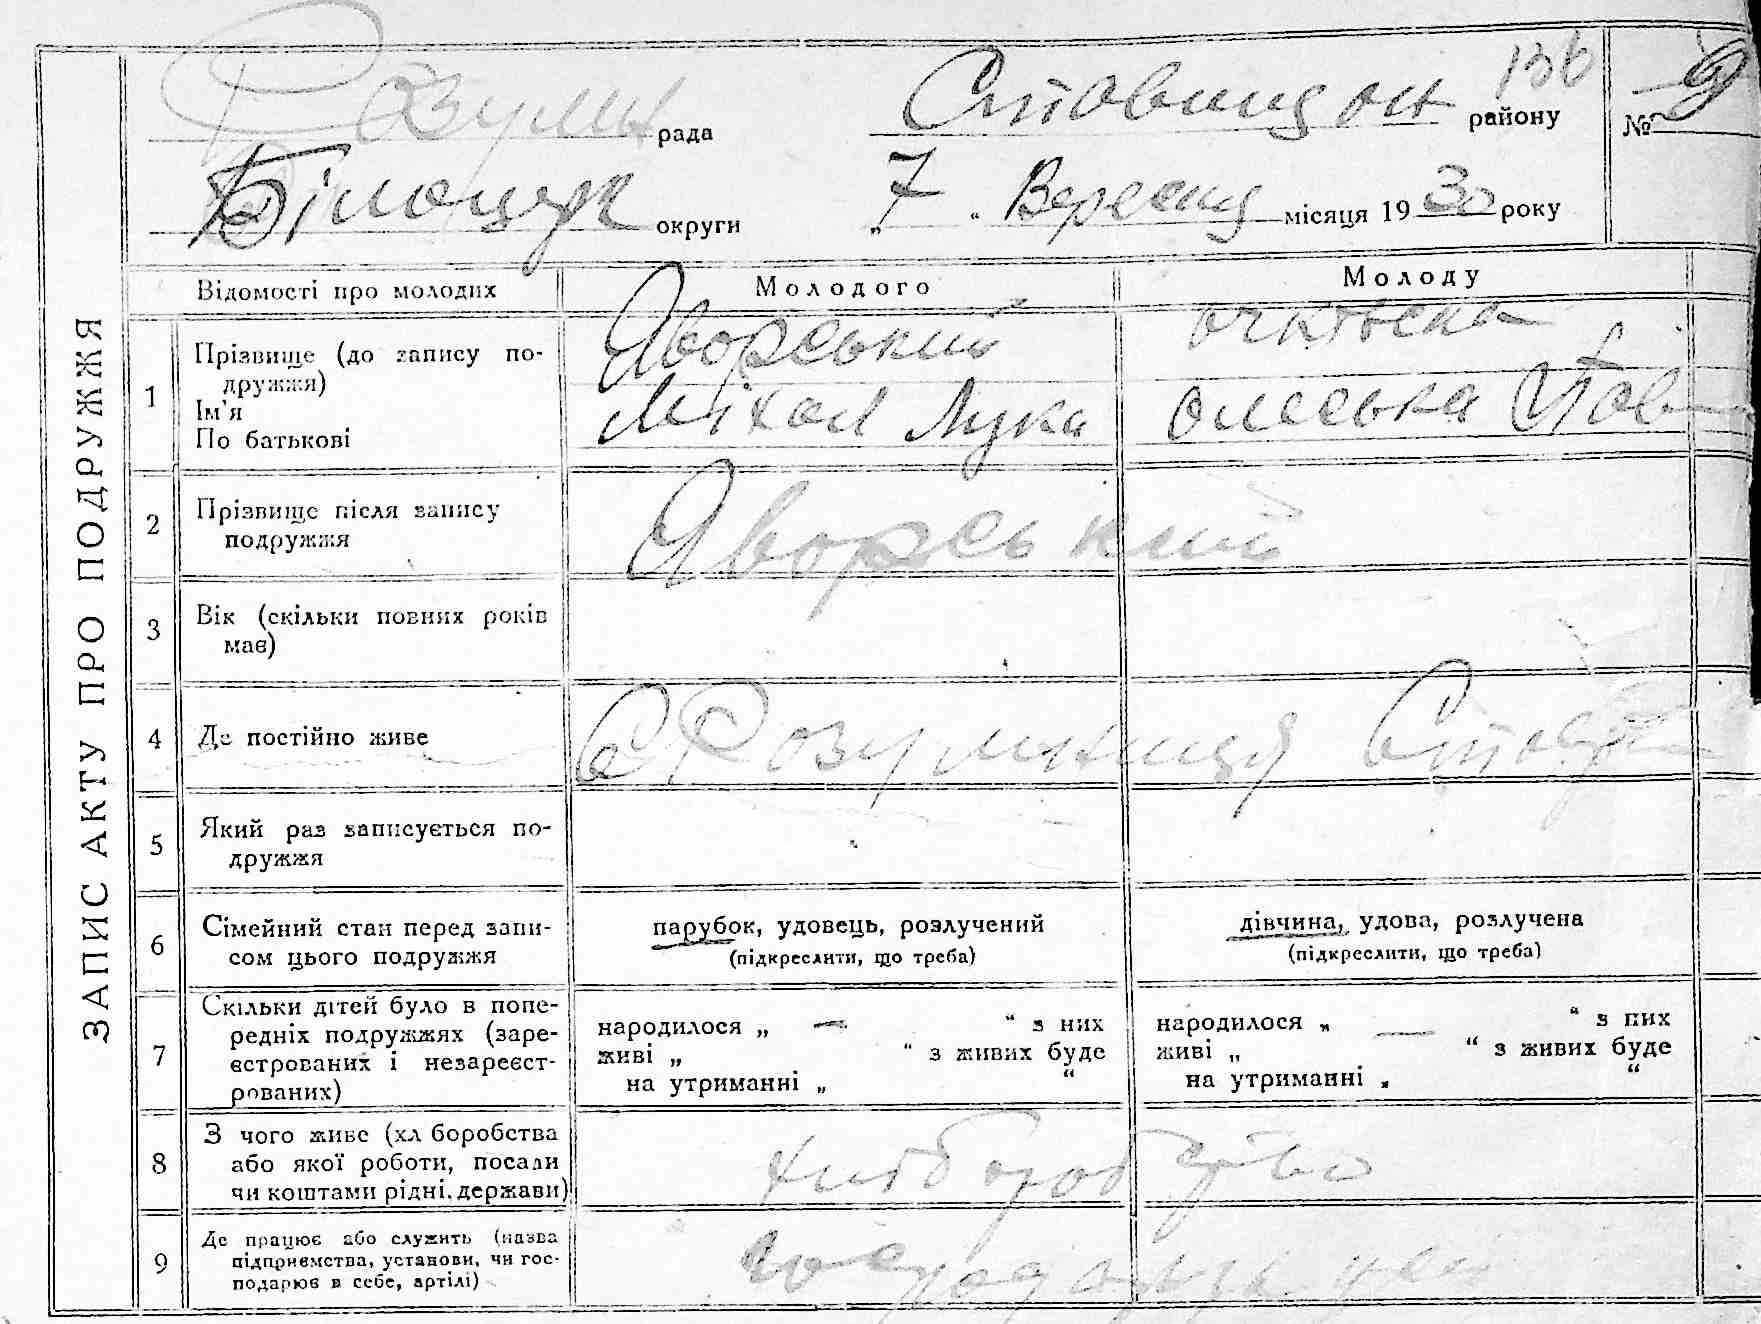 136
Розумн рада Ставищан району № 9
Білоцерк округи „ 7 “ Вересня місяця 1930 року
ЗАПИС АКТУ ПРО ПОДРУЖЖЯ
Відомості про молодих Молодого Молоду
1 Прізвище (до запису по-
дружжя)
Ім'я
По батькові
Яворський
Міхал Лука
Олеська Пав
2 Прізвище після запису
подружжя
Яворський
3 Вік (скільки повних років
має)
4 Де постійно живе
с Розумниця Став
5 Який раз записується по-
дружжя
6 Сімейний стан перед запи-
сом цього подружжя
парубок, удовець, розлучений
(підкреслити, що треба)
дівчина, удова, розлучена
(підкреслити, що треба)
7 Скільки дітей було в попе-
редніх подружжях (заре-
єстрованих і незареєст-
рованих)
народилося „ — “ з них
живі „ “ з живих буде
на утриманні „ “
народилося „ — “ з них
живі „ “ з живих буде
на утриманні „ “
8 З чого живе (хл боробства
або якої роботи, посади
чи коштами рідні, держави)
хліборобство
9 Де працює або служить (назва
підприємства, установи, чи гос-
подарює в себе, артілі)